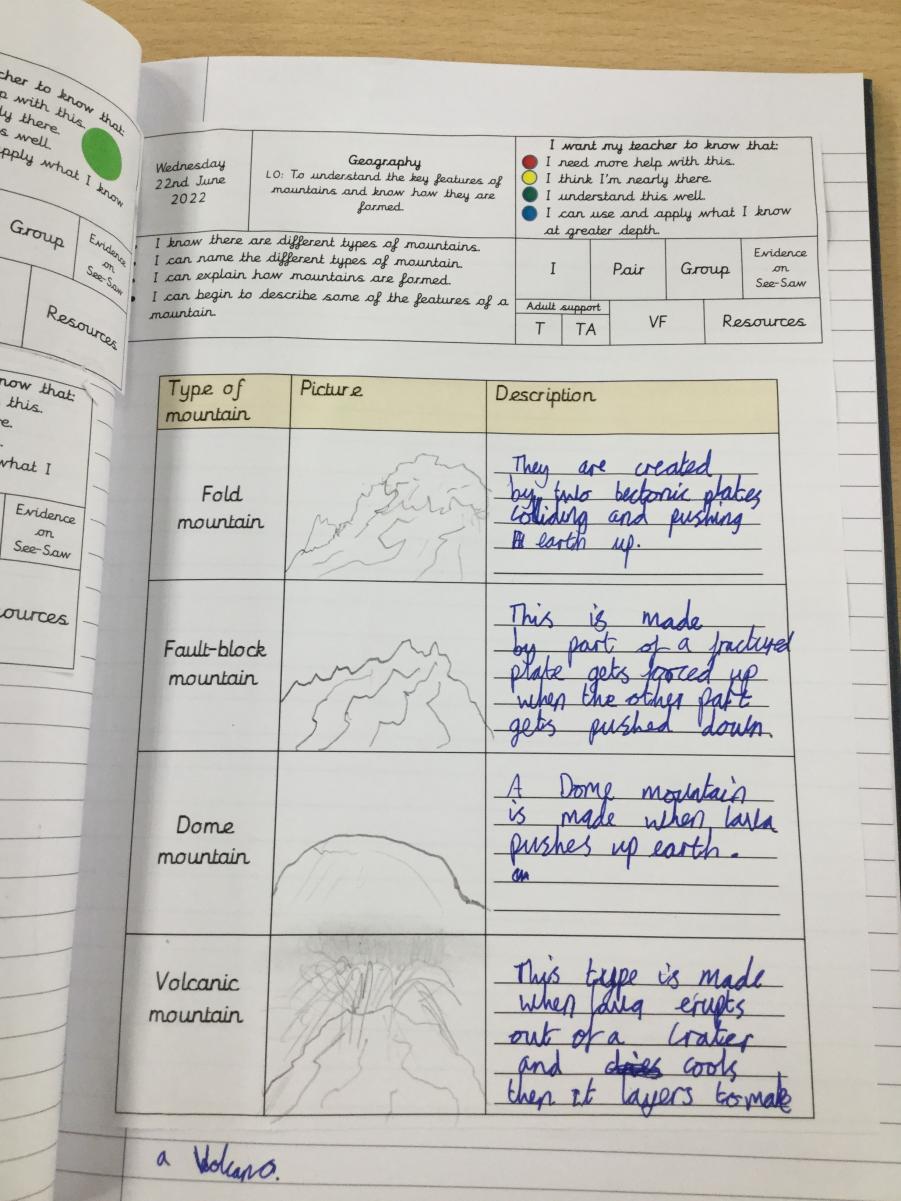 cher to know that:
p with this.
ly there.
s well.
apply what I know
Group
Evidence
on
See-Saw
Resources
now that:
this.
e.
what I
Evidence
on
See-Saw
ources
Wednesday
22nd June
2022
Geography
LO: To understand the key features of
mountains and know how they are
formed.
I want my teacher to know that:
I need more help with this.
I think I'm nearly there.
I understand this well.
I can use and apply what I know
at greater depth.
• I know there are different types of mountains.
• I can name the different types of mountain.
• I can explain how mountains are formed.
• I can begin to describe some of the features of a
mountain.
I
Pair
Group
Evidence
on
See-Saw
Adult support
T
TA
VF
Resources
Type of
mountain
Picture
Description
Fold
mountain
They are created
by two tectonic plates
colliding and pushing
earth up.
Fault-block
mountain
This is made
by part of a fractured
plate gets forced up
when the other part
gets pushed down.
Dome
mountain
A Dome mountain
is made when larva
pushes up earth.
Volcanic
mountain
This type is made
when lava erupts
out of a crater
and dries cools
then it layers to make
a Volcano.